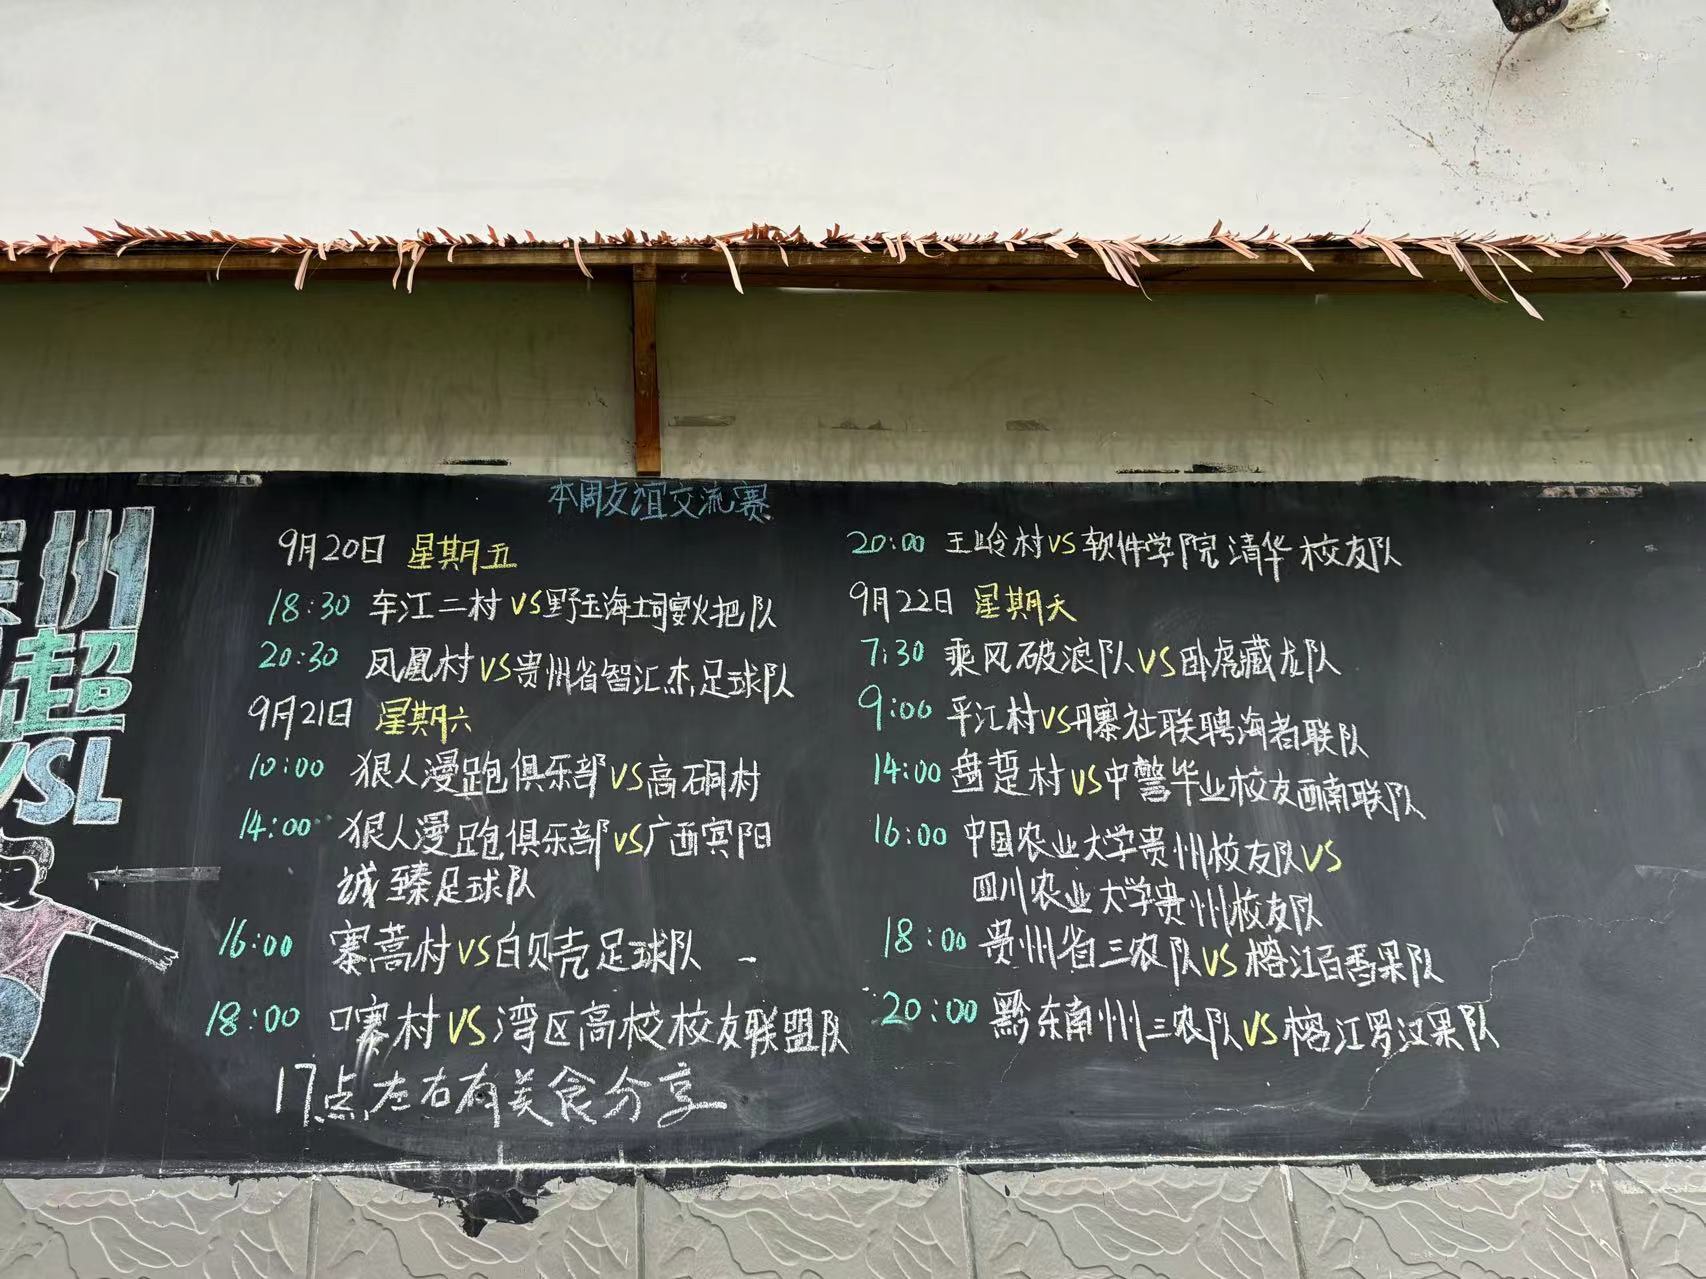 本周友谊交流赛
9月20日 星期五
18:30 车江二村VS野玉海土司宴火把队
20:30 凤凰村VS贵州省智汇杰足球队
9月21日 星期六
10:00 狠人漫跑俱乐部VS高硐村
14:00 狠人漫跑俱乐部VS广西宾阳
诚臻足球队
16:00 寨蒿村VS白贝壳足球队
18:00 口寨村VS湾区高校校友联盟队
17点左右有美食分享
20:00 王岭村VS软件学院清华校友队
9月22日 星期天
7:30 乘风破浪队VS卧虎藏龙队
9:00 平江村VS丹寨社联聘海者联队
14:00 盘踅村VS中警毕业校友西南联队
16:00 中国农业大学贵州校友队VS
四川农业大学贵州校友队
18:00 贵州省三农队VS榕江百香果队
20:00 黔东南州三农队VS榕江罗汉果队
州
超
VSL